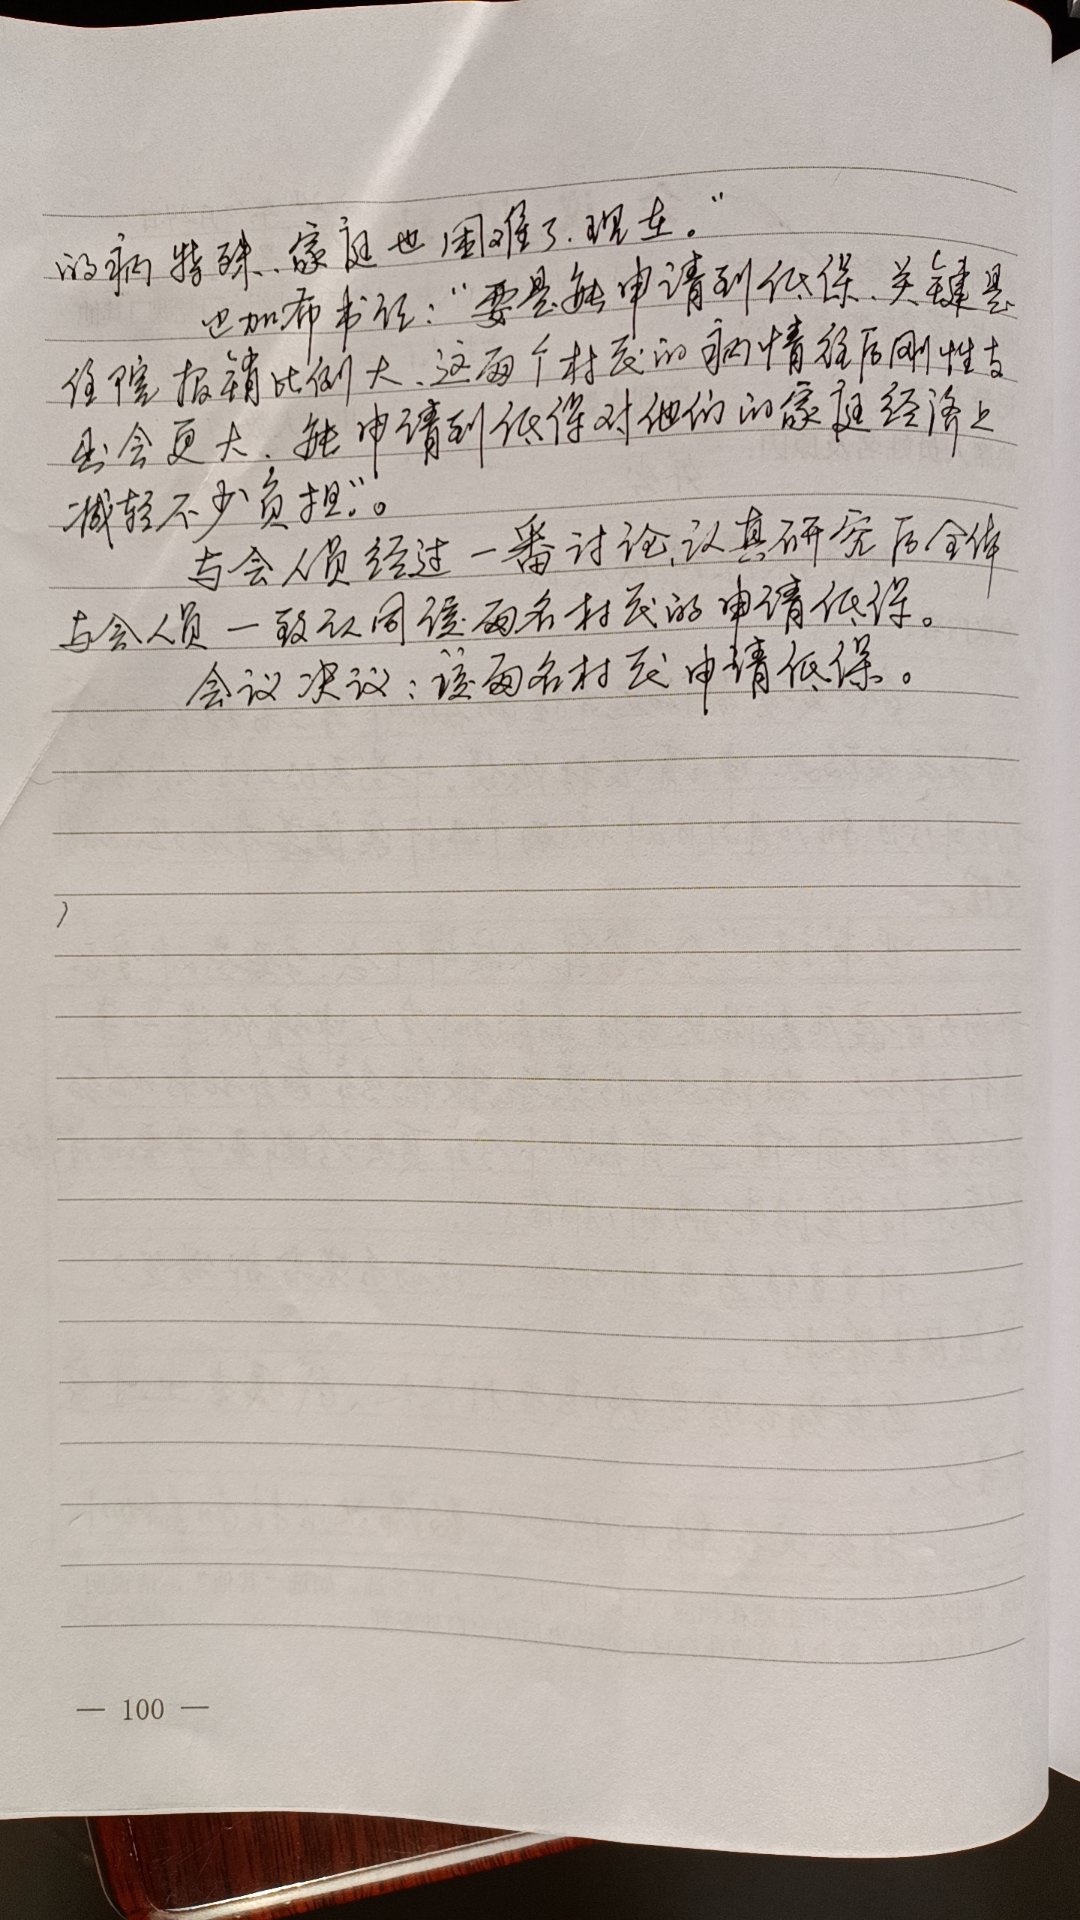 的病特殊、家庭也困难了.现在。"
也加布书记:"要是能申请到低保、关键是
住院报销比例大、这两个村民的病情往后刚性支
出会更大、能申请到低保对他们的家庭经济上
减轻不少负担"。
与会人员经过一番讨论,认真研究后全体
与会人员一致认同该两名村民的申请低保。
会议决议:该两名村民申请低保。
— 100 —